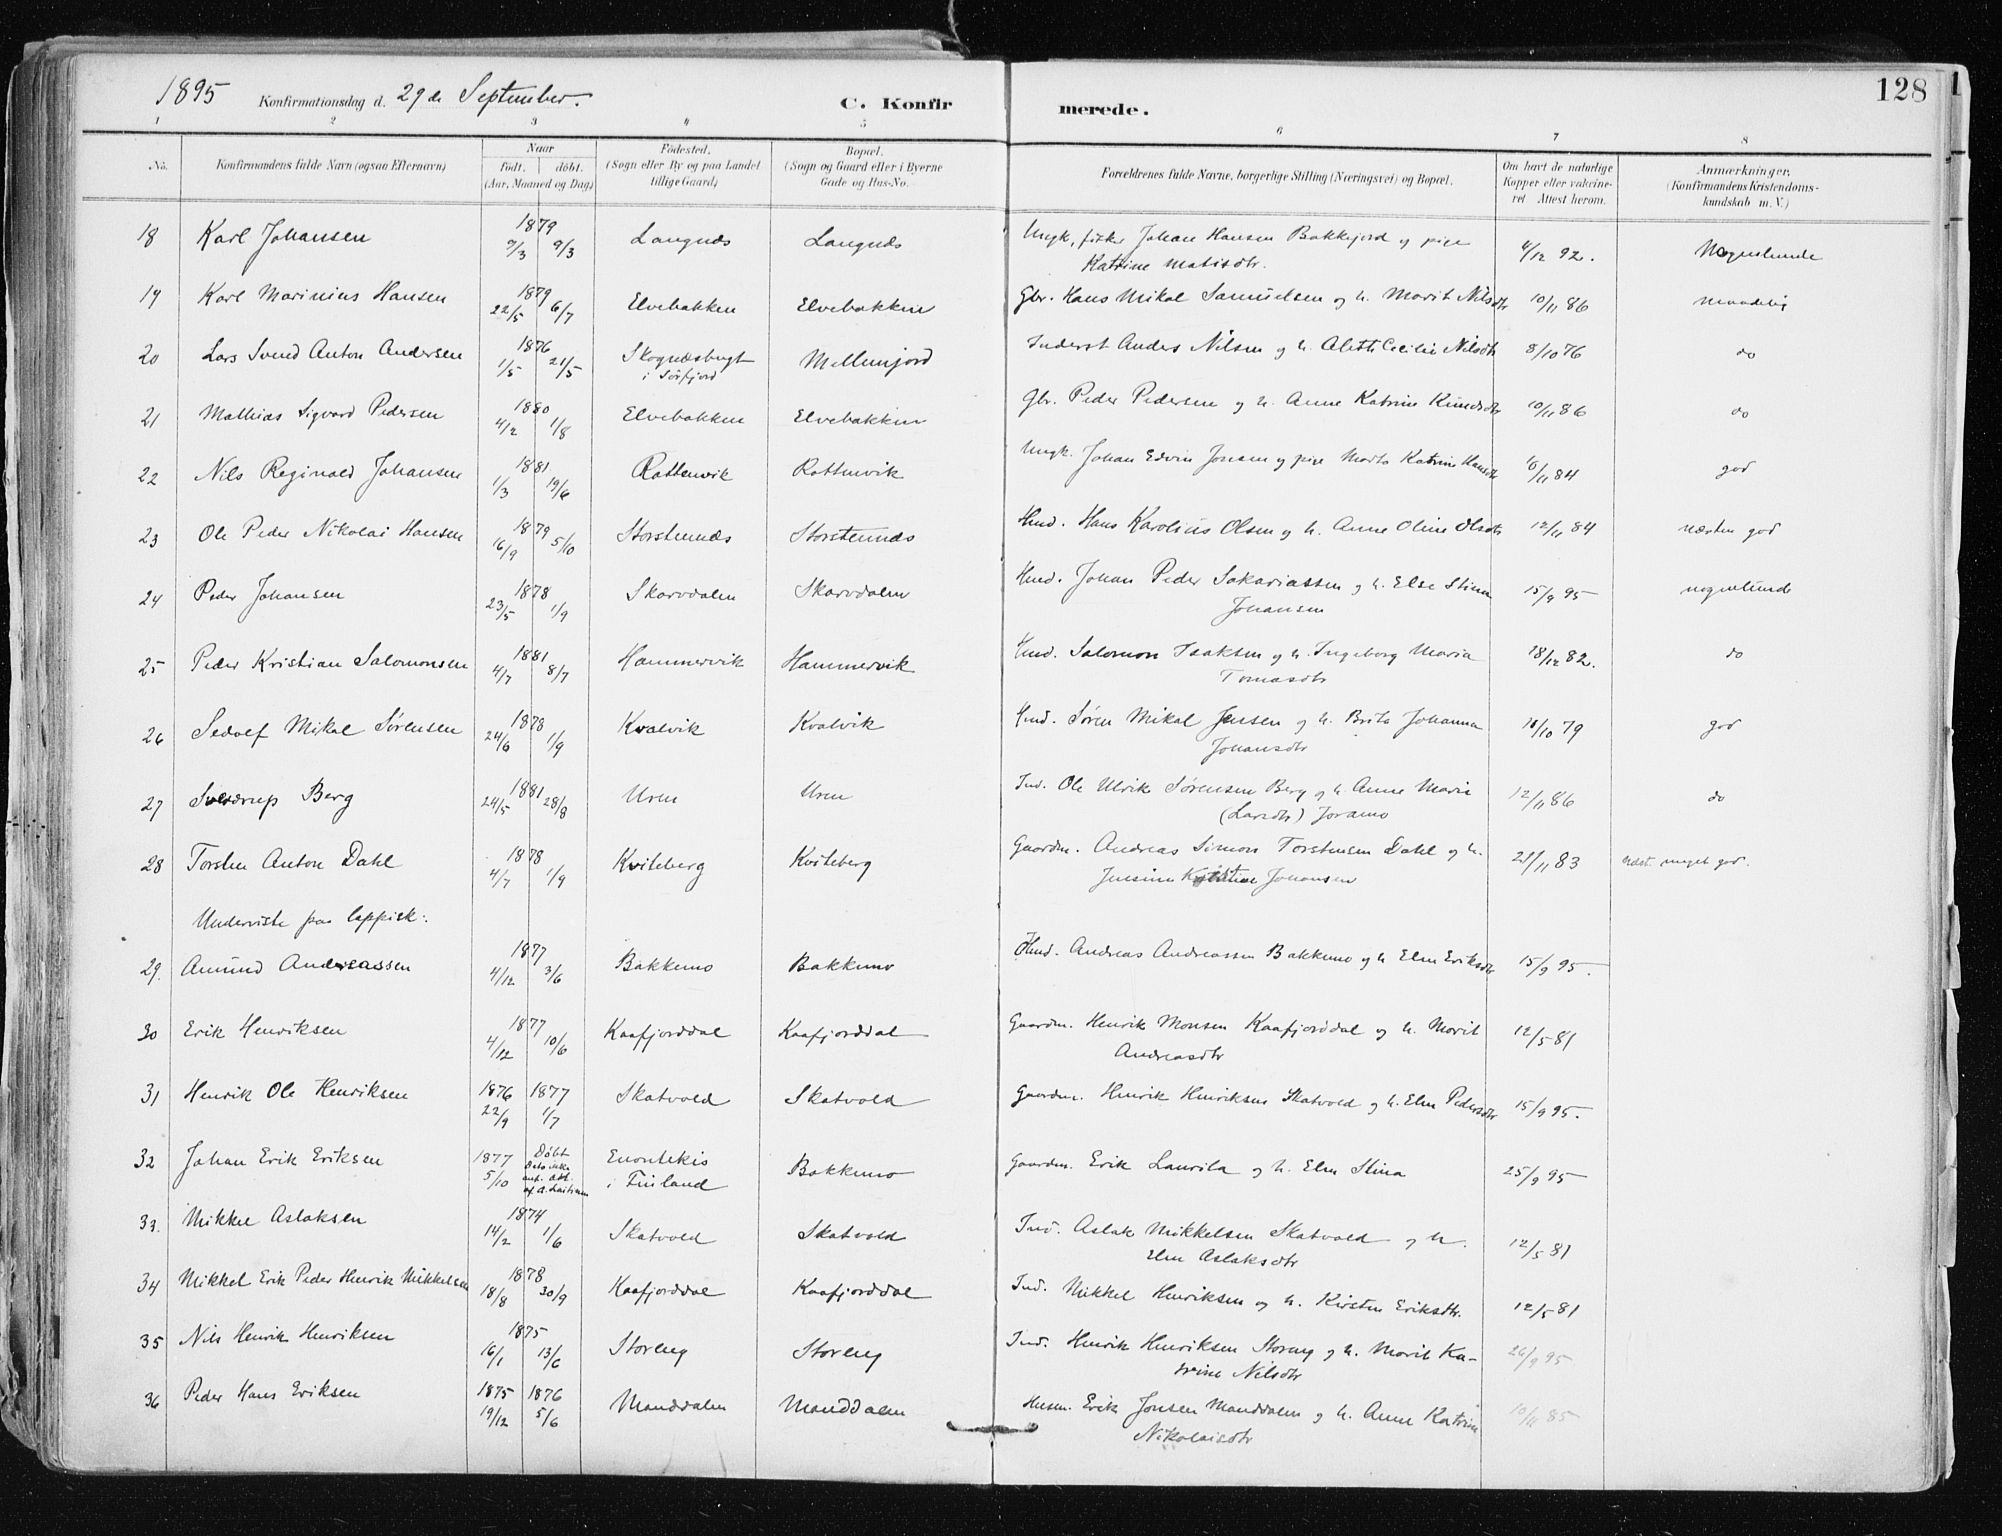 1895 Konfirmationsdag d. 29de September. C. Konfir merede. 128
1 2 3 4 5 6 7 8
No. Konfirmandens fulde Navn (ogsaa Efternavn) Naar født. døbt. (Aar, Maaned og Dag) Fødested. (Sogn eller By og paa Landet tillige Gaard) Bopæl. (Sogn og Gaard eller i Byerne Gade og Hus-No. Forældrenes fulde Navne, borgerlige Stilling (Næringsvei) og Bopæl. Om havt de naturlige Kopper eller vakcineret Attest herom. Anmærkninger. (Konfirmandens Kristendomskundskab m. V.)
18 Karl Johansen 1879 9/3 9/3 Langnæs Langnæs Ungk., fisker Johan Hansen Bakkejord og pige 4/12 92. Nogenlunde
Katrine Matisdtr.
19 Karl Marinius Hansen 1879 22/5 6/7 Elvebakken Elvebakken Gbr. Hans Mikal Samuelsen og h. Marit Nilsdtr 10/11 86 maadelig
20 Lars Svend Anton Andersen 1876 1/5 21/5 Skognæsbugt i Sörfjord Mellemjord Inderst Anders Nilsen og h. Aleth Cecilie Nilsdtr 8/10 76 do
21 Mathias Sigvard Pedersen 1880 4/2 1/8 Elvebakken Elvebakken Gbr. Peder Pedersen og h. Anne Katrine Knudsdtr 10/11 86 do
22 Nils Reginald Johansen 1881 1/3 19/6 Rottenvik Rottenvik Ungk. Johan Edvin Jonsen og pige Marta Katrine Hansdtr 10/11 84 god
23 Ole Peder Nikolai Hansen 1879 16/9 5/10 Storstennæs Storstennæs Husd. Hans Karolius Olsen og h. Anne Oline Olsdtr 12/11 84 næsten god
24 Peder Johansen 1878 23/5 1/9 Skarvdalen Skarvdalen Husd. Johan Peder Sakariassen og h. Else Stina 15/9 95 nogenlunde
Johansen
25 Peder Kristian Salomonsen 1881 4/7 8/7 Hammervik Hammervik Husd. Salomon Isaksen og h. Ingeborg Maria 18/12 82. do
Tomasdtr
26 Sedolf Mikal Sørensen 1878 24/6 1/9 Kvalvik Kvalvik Husd. Søren Mikal Jensen og h. Brita Johanna 18/10 79 god
Johansdtr
27 Sverdrup Berg 1881 24/5 28/8 Uren Uren Ind. Ole Ulrik Sørensen Berg og h. Anne Marie 12/11 86 do
(Larsdtr) Joramo
28 Torsten Anton Dahl 1878 4/7 1/9 Kviteberg Kviteberg Gaardm. Andreas Simon Torstensen Dahl og h. 28/11 83 næst. meget god.
Jensine Kristine Johansen
Underviste paa lappisk:
29. Amund Andreassen 1877 4/12 3/6 Bakkemo Bakkemo Husd. Andreas Andreassen Bakkemo og h Elen Eriksdtr 15/9 95.
30 Erik Henriksen 1877 4/12 10/6 Kaafjorddal Kaafjorddal Gaardm. Henrik Monsen Kaafjorddal og h. Marit 12/5 81
Andreasdtr
31 Henrik Ole Henriksen 1876 22/9 1877 1/7 Skatvold Skatvold Gaardm. Henrik Henriksen Skatvold og h. Elen Pedersdtr 15/9 95.
32 Johan Erik Eriksen 1877 5/10 Døbt Dato ikke anf. att. af A. Laitinen Enontekis i Finland Bakkemo Gaardm. Erik Laurila og h. Elen Stina 25/9 95
33. Mikkel Aslaksen 1874 14/2 1/6 Skatvold Skatvold Ind. Aslak Mikkelsen Skatvold og h. 12/5 81
Elen Aslaksdtr
34 Mikkel Erik Peder Henrik Mikkelsen 1878 18/8 30/9 Kaafjorddal Kaafjorddal Ind. Mikkel Henriksen og h. Kirsten Eriksdtr. 12/5 81
35 Nils Henrik Henriksen 1875 16/1 13/6 Storeng Storeng Ind. Henrik Henriksen Storeng og h. Marit Ka- 26/9 95
trine Nilsdtr
36 Peder Hans Eriksen 1875 19/12 1876 5/6 Manddalen Manddalen Husm. Erik Jonsen Manddalen og h. Anne Katrine 10/11 85
Nikolaisdtr